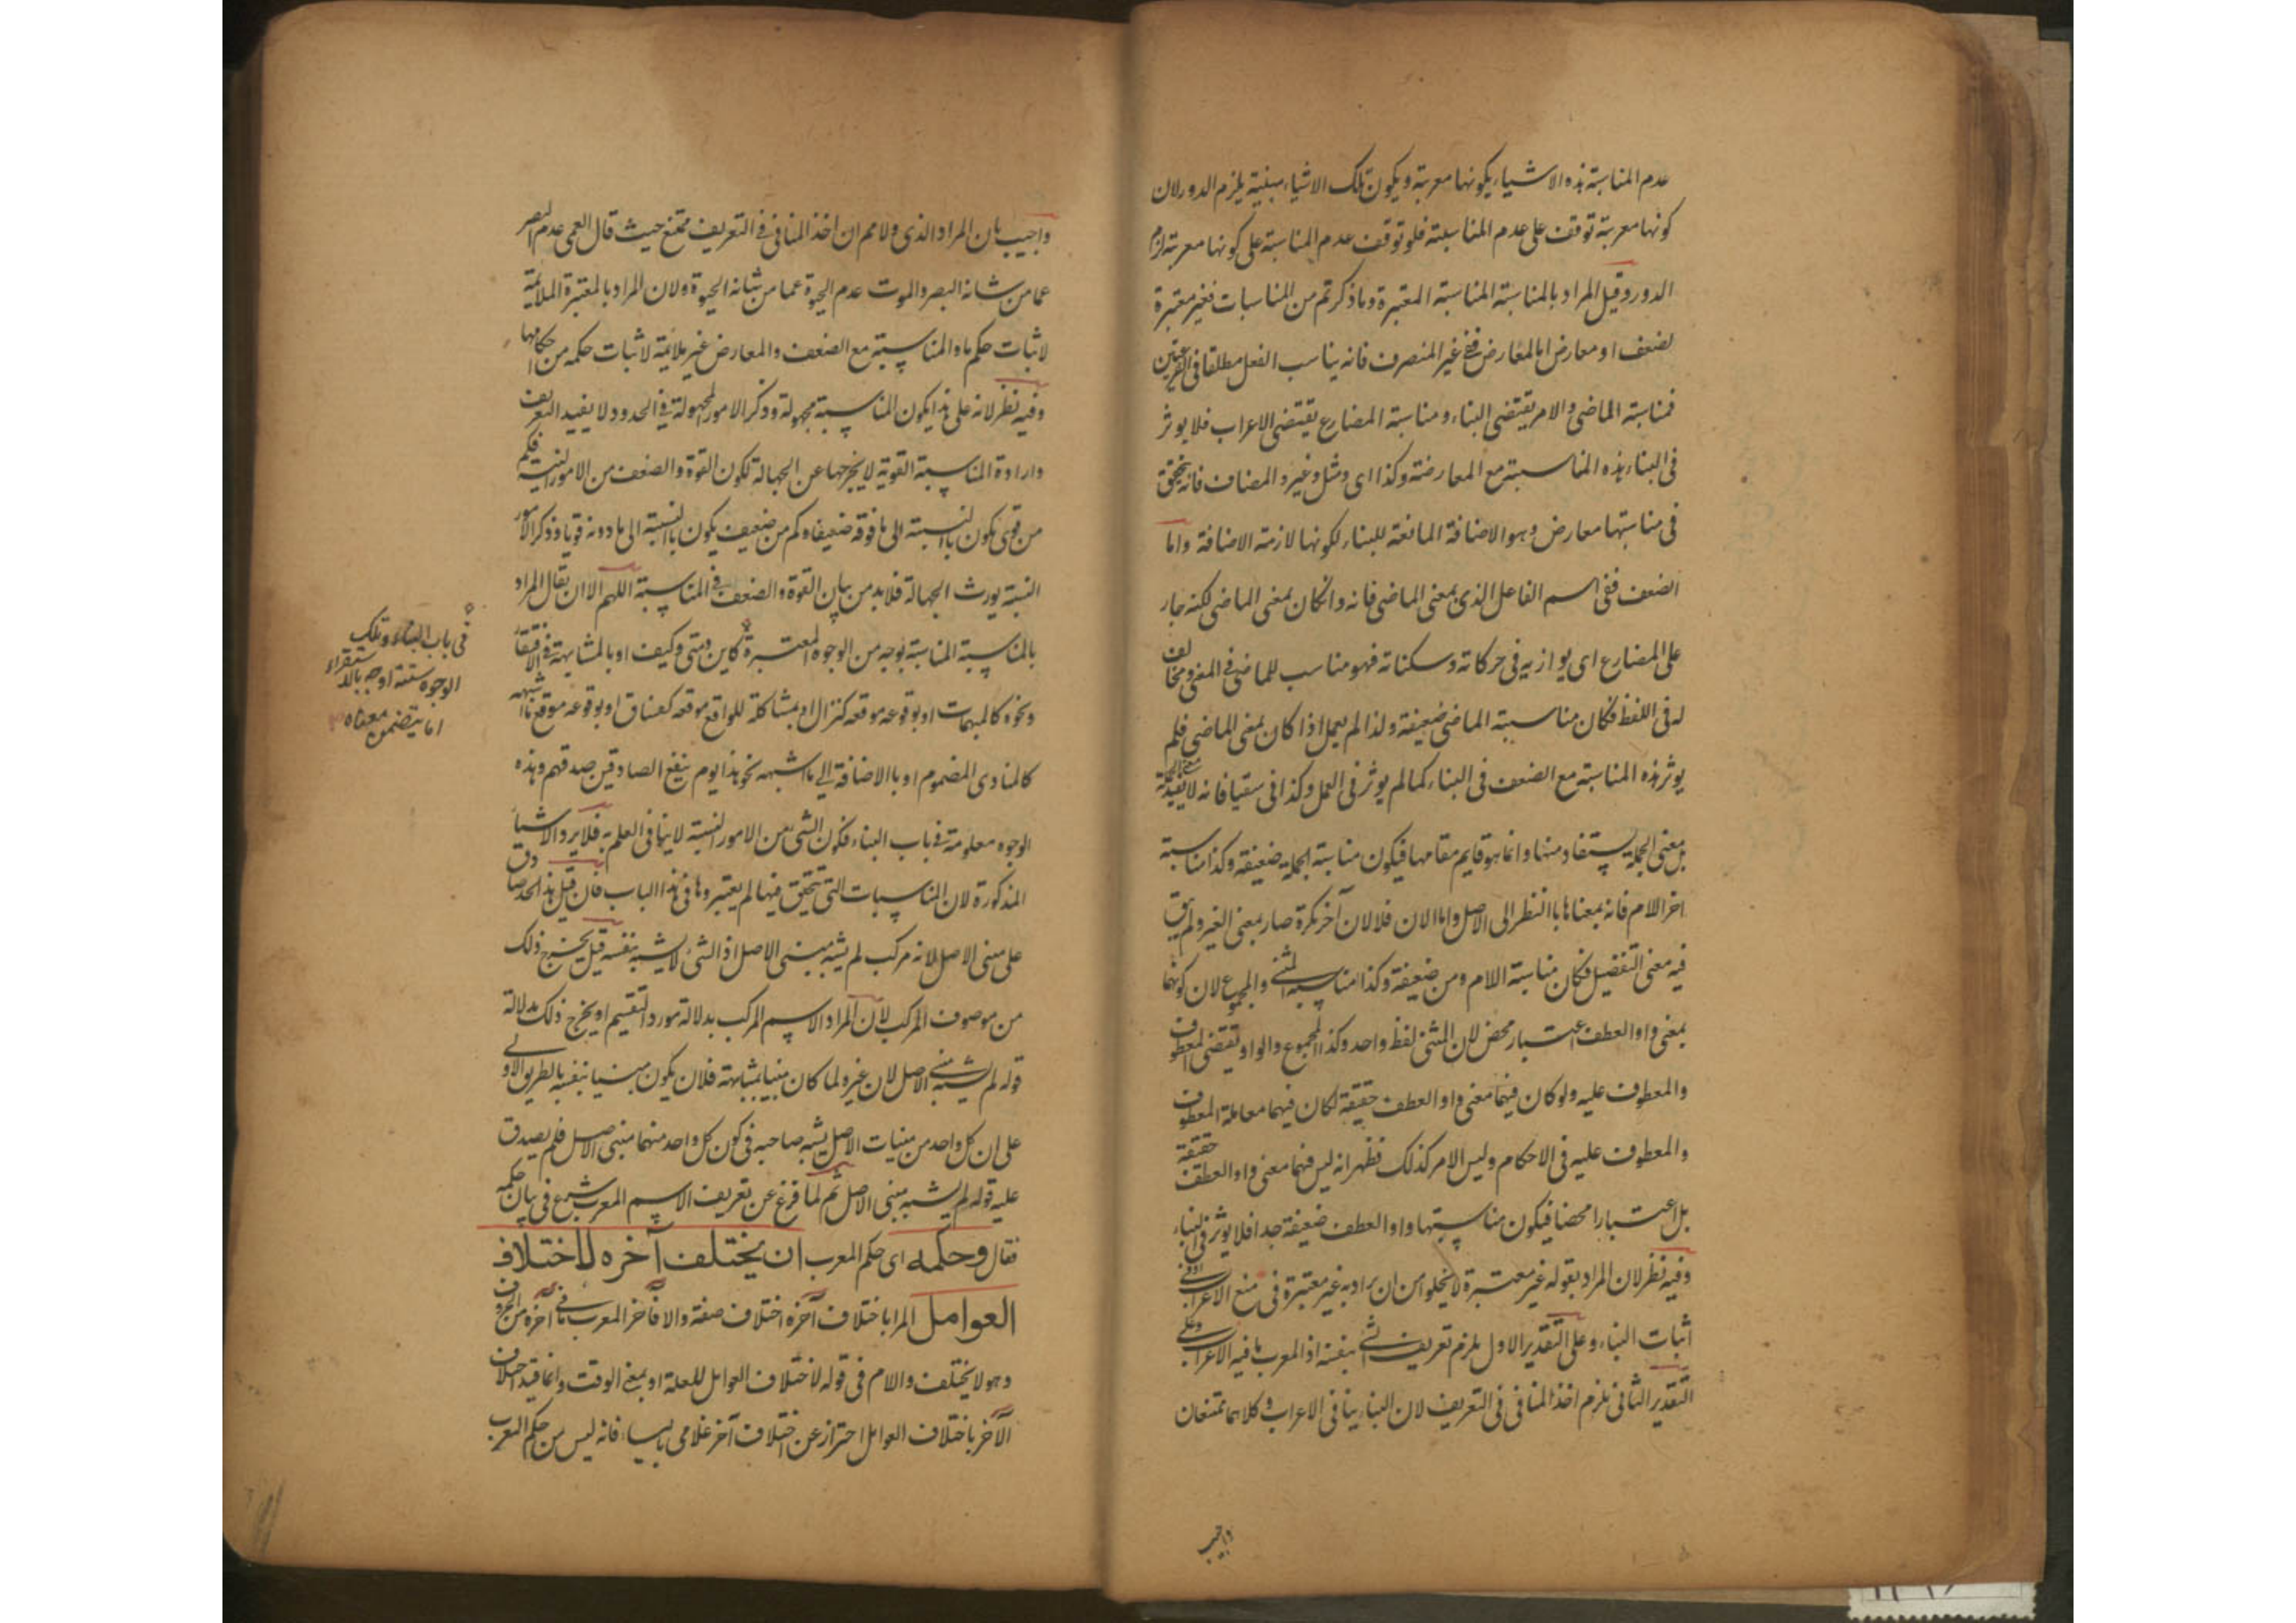 عدم المناسبة هذه الاشياء بكونها معربة وبكون تلك الاشياء مبنية يلزم الدور لان
كونها معربة توقف على عدم المناسبة فلو توقف عدم المناسبة على كونها معربة لزم
الدور وقيل المراد بالمناسبة المناسبة المعتبرة وما ذكرتم من المناسبات فغير معتبرة
لضعف او معارض اما المعارض ففى غير المنصرف فانه يناسب الفعل مطلقا فى الفرعيتين
فمناسبة الماضى والامر يقتضى البناء ومناسبة المضارع يقتضى الاعراب فلا يوثر
فى البناء هذه المناسبة مع المعارضة وكذا اى ومثل وغير والمضاف فانه يتحقق
فى مناسبتها معارض وهو الاضافة المانعة للبناء لكونها لازمة الاضافة واما
الضعف ففى اسم الفاعل الذى بمعنى الماضى فانه وانكان بمعنى الماضى لكنه جار
على المضارع اى يوازيه فى حركاته وسكناته فهو مناسب للماضى فى المعنى ومخالف
له فى اللفظ فكان مناسبة الماضى ضعيفة ولذا لم يعمل اذا كان بمعنى الماضى فلم
يوثر هذه المناسبة مع الضعف فى البناء كما لم يوثر فى العمل وكذا فى سقيا فانه لا يفيد معنى الجملة
بل معنى الجملة يستفاد منها وانما هو قايم مقامها فيكون مناسبة الجملة ضعيفة وكذا مناسبة
اخر اللام فانه بمعناها باالنظر الى الاصل واما الان فلا لان آخر نكرة صار بمعنى الغير ولم يبق
فيه معنى التفضيل فكان مناسبة اللام ومن ضعيفة وكذا مناسبة المثنى والمجموع لان كونهما
بمعنى واو العطف اعتبار محض لان المثنى لفظ واحد وكذا المجموع والواو تقتضى المعطوف
والمعطوف عليه ولو كان فيهما معنى واو العطف حقيقة لكان فيهما معاملة المعطوف
والمعطوف عليه فى الاحكام وليس الامر كذلك فظهر انه ليس فيهما معنى واو العطف حقيقة
بل اعتبارا محضا فيكون مناسبتها واو العطف ضعيفة جدا فلا يوثر فى البناء
وفيه نظر لان المراد بقوله غير معتبرة لا يخلو من ان يراد به غير معتبرة فى منع الاعراب او فى
اثبات البناء وعلى التقدير الاول يلزم تعريف الشى بنفسه اذ المعرب ما فيه الاعراب وعلى
التقدير الثانى يلزم اخذ المنافى فى التعريف لان البناء ينافى الاعراب وكلاهما ممتنعان
واجيب
واجيب بان المراد الذى ولا مم ان اخذ المنافى فى التعريف ممتنع حيث قال العمى عدم البصر
عما من شانه البصر والموت عدم الحيوة عما من شانه الحيوة ولان المراد بالمعتبرة الملايمة
لاثبات حكم ما والمناسبة مع الضعف والمعارض غير ملايمة لاثبات حكمه من احكامها
وفيه نظر لانه على هذا يكون المناسبة مجهولة وذكر الامور المجهولة فى الحدود لا يفيد التعريف
وارادة المناسبة القوية لا يخرجها عن الجهالة لكون القوة والضعف من الامور النسبية فكم
من قوى يكون باالنسبة الى ما فوقه ضعيفا وكم من ضعيف يكون باالنسبة الى ما دونه قويا وذكر الامور
النسبة يورث الجهالة فلابد من بيان القوة والضعف فى المناسبة اللهم الا ان يقال المراد
بالمناسبة المناسبة بوجه من الوجوه المعتبرة كاين ومتى وكيف او بالمشابهة فى الافتقار
ونحوه كالمبهمات او بوقوعه موقعه كنزال او بمشاكلة للواقع موقعه كعناق او بوقوعه موقع ما اشبهه
كالمنادى المضموم او باالاضافة الى ما اشبهه نحو هذا يوم ينفع الصادقين صدقهم وهذه
الوجوه معلومة فى باب البناء فكون الشى من الامور النسبة لا ينافى العلم به فلا يرد الاشياء
المذكورة لان المناسبات التى تتحقق فيها لم يعتبروها فى هذا الباب فان قيل هذا الحد صادق
على مبنى الاصل لانه مركب لم يشبه مبنى الاصل اذ الشى لا يشبه بنفسه قيل يخرج ذلك
من موصوف المركب لان المراد الاسم المركب بدلالة مورد التقسيم او يخرج ذلك بدلالة
قوله لم يشبه مبنى الاصل لان غيره لما كان مبنيا بمشابهته فلان يكون مبنيا بنفسه بالطريق الاولى
على ان كل واحد من مبنيات الاصل يشبه صاحبه فى كون كل واحد منهما مبنى الاصل فلم يصدق
عليه قوله لم يشبه مبنى الاصل ثم لما فرغ عن تعريف الاسم المعرب شرع فى بيان حكمه
فقال وحكمه اى حكم المعرب ان يختلف آخره لاختلاف
العوامل المراد باختلاف آخره اختلاف صفة والا فآخر المعرب ما فى آخره من الحروف
وهو لا يختلف والام فى قوله لاختلاف العوامل للعلة او بمعنى الوقت وانما قيد اختلاف
الآخر باختلاف العوامل احتراز عن اختلاف آخر غلامى بالياء فانه ليس من حكم المعرب
فى باب البناء وتلك
الوجوه ستة اوجه بالاستقراء
اما يتضمن معناه